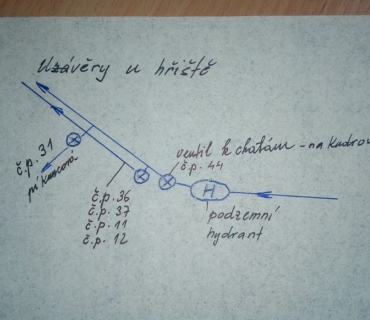 Uzávěry u hřiště
ventil k chatám - na Kudrov
č.p. 44
č.p. 31
č.p. 36
č.p. 37
č.p. 11
č.p. 12
H
podzemní
hydrant